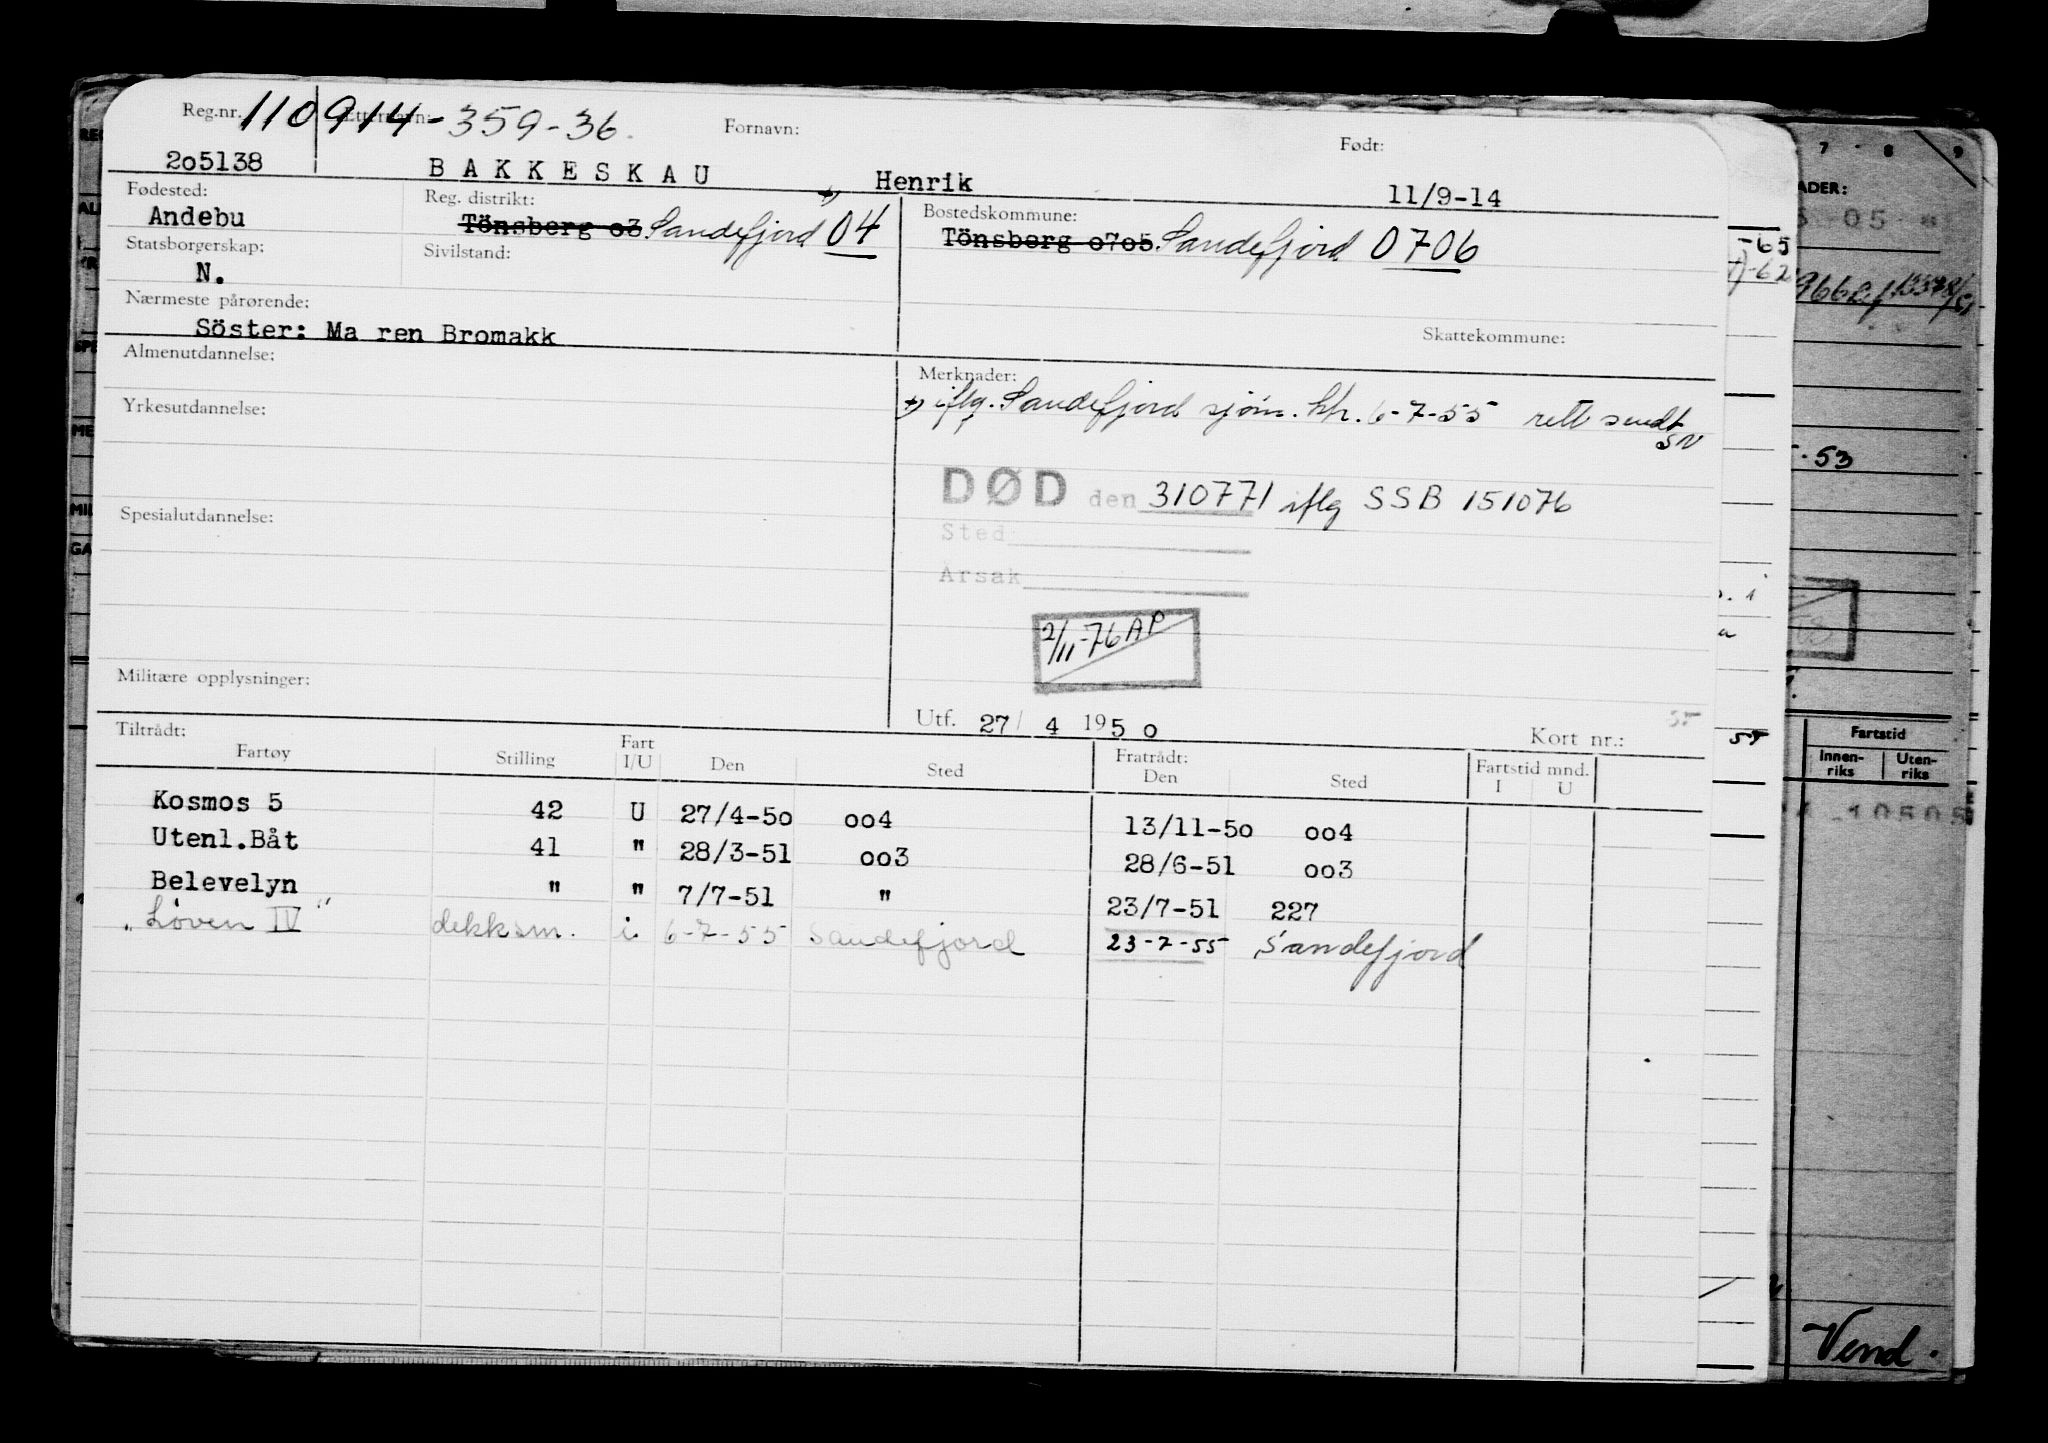 Reg.nr. 110914-359-36. Etternavn: Fornavn: Født:
2o5138 BAKKESKAU Henrik 11/9-14
Fødested: Reg. distrikt: +) Bostedskommune:
Andebu Tönsberg o3 Sandefjord 04 Tönsberg o7o5 Sandefjord 0706
Statsborgerskap: Sivilstand:
N.
Nærmeste pårørende:
Söster: Ma ren Bromakk Skattekommune:
Almenutdannelse: Merknader:
+) iflg. Sandefjord sjøm. ktr. 6-7-55 rett sendt
SV
Yrkesutdannelse:
DØD den 310771 iflg SSB 151076
Spesialutdannelse: Sted
Arsak
2/11-76 AP
Militære opplysninger:
Utf. 27/ 4 195o Kort nr.:
Tiltrådt: Fratrådt:
Fartøy Stilling Fart I/U Den Sted Den Sted Fartstid mnd. I U
Kosmos 5 42 U 27/4-5o oo4 13/11-5o oo4
Utenl.Båt 41 " 28/3-51 oo3 28/6-51 oo3
Belevelyn " " 7/7-51 " 23/7-51 227
"Løven IV" dekksm. i. 6-7-55 Sandefjord 23-7-55 Sandefjord
7 - 8 9
ADER:
-65
-62
-53
Fartstid
Innen-riks Uten-riks
Vend.